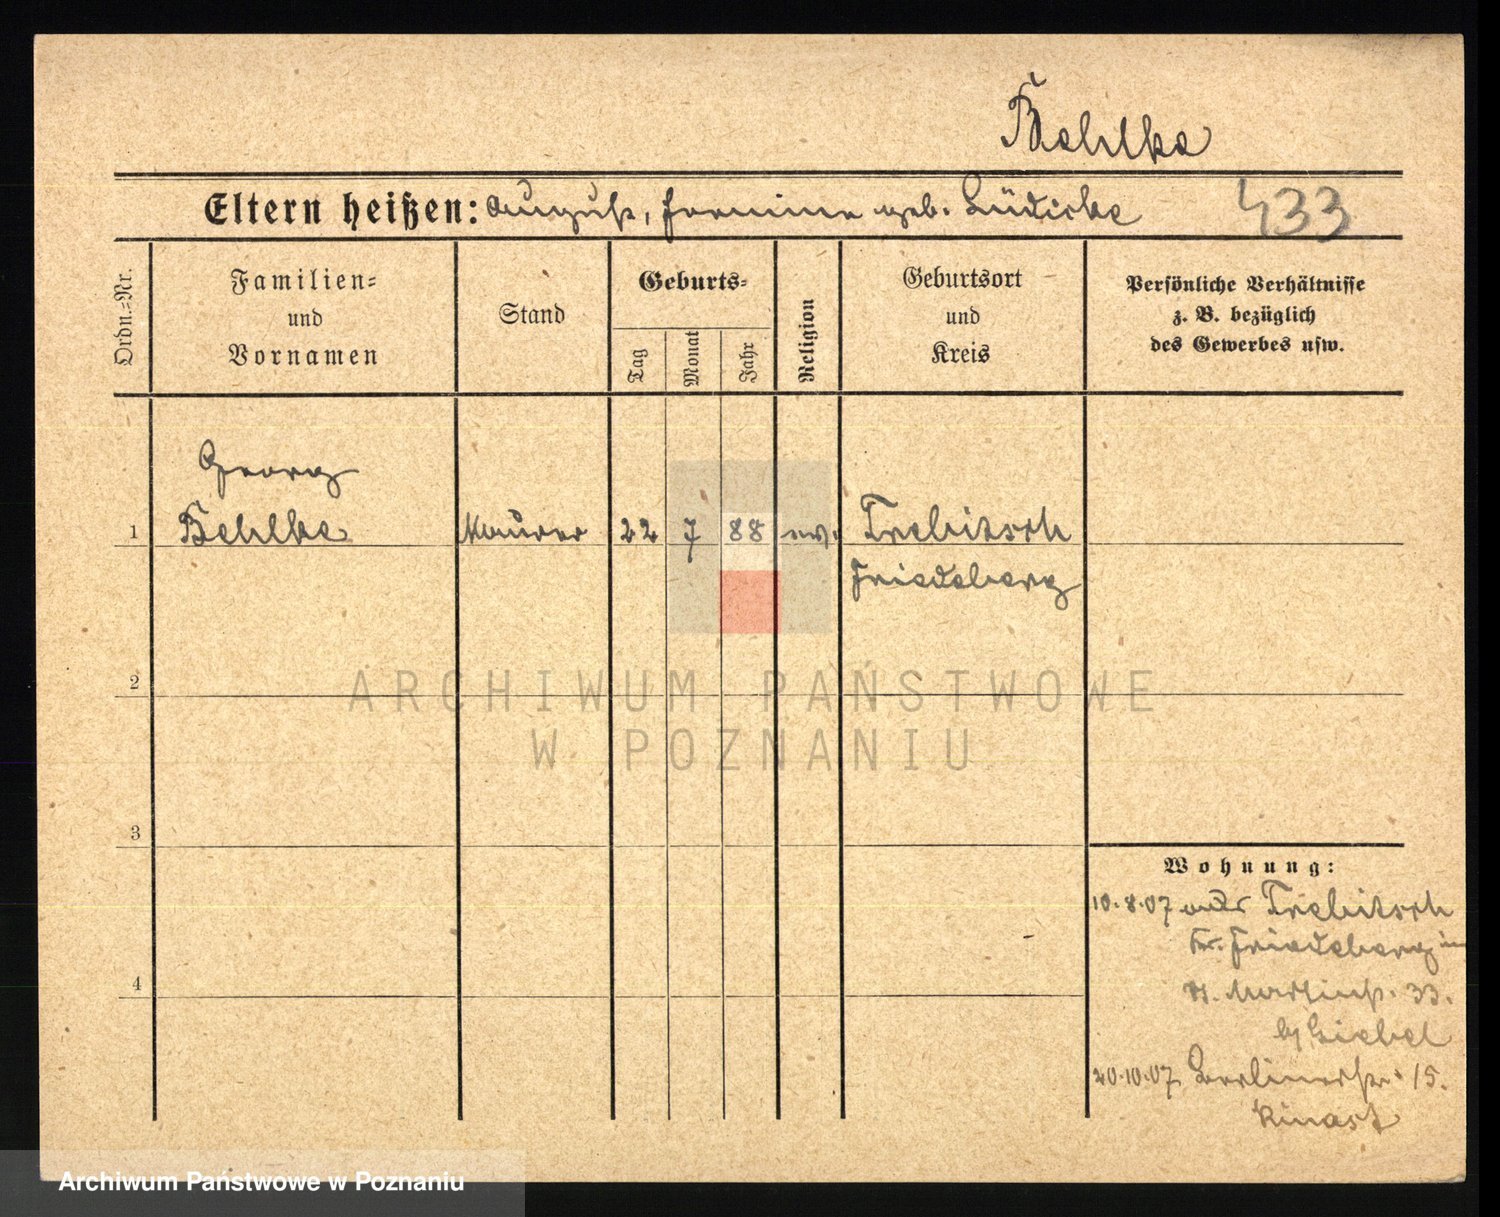 Behlke
Eltern heißen: August, Hermine geb. Lüdicke 433
Ordn.=Nr.
Familien=
und
Vornamen
Stand
Geburts=
Tag
Monat
Jahr
Religion
Geburtsort
und
Kreis
Persönliche Verhältnisse
z. B. bezüglich
des Gewerbes usw.
Georg
1 Behlke Maurer 22 7 88 ev. Trebitsch
Friedeberg
2
ARCHIWUM PAŃSTWOWE
W POZNANIU
3
Wohnung:
10.8.07 aus Trebitsch
Kr. Friedeberg
4
St. Martinstr. 33.
by Giebel
20.10.07 Berlinerstr. 15.
Kinast
Archiwum Państwowe w Poznaniu